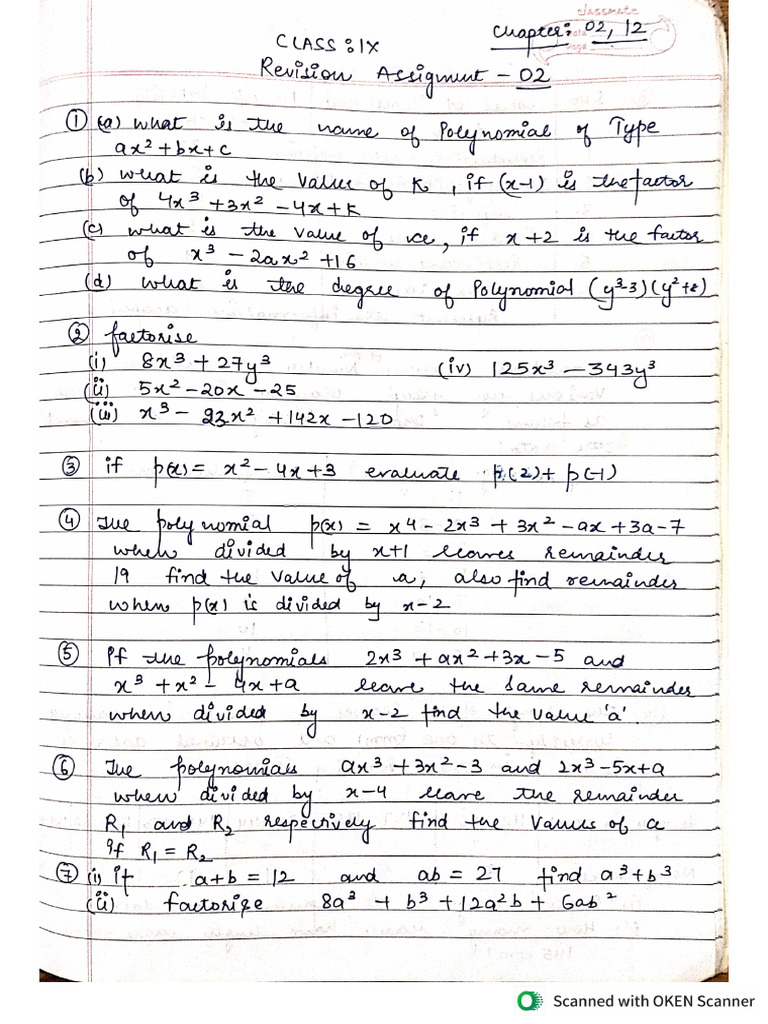 classmate
Chapter: 02, 12
CLASS: IX
Revision Assigment - 02
① (a) what is the name of Polynomial of Type
ax² + bx + c
(b) what is the value of K, if (x-1) is the factor
of 4x³ + 3x² - 4x + k
(c) what is the value of , if x+2 is the factor
of x³ - 2ax² + 16
(d) what is the degree of Polynomial (y³-3)(y²+8)
② factorise
(i) 8x³ + 27y³ (iv) 125x³ - 343y³
(ii) 5x² - 20x - 25
(iii) x³ - 23x² + 142x - 120
③ if p(x) = x² - 4x + 3 evaluate p(2) + p(-1)
④ The polynomial p(x) = x4 - 2x³ + 3x² - ax + 3a - 7
when divided by x+1 leaves remainder
19 find the value of a, also find remainder
when p(x) is divided by x-2
⑤ If the polynomials 2x³ + ax² + 3x - 5 and
x³ + x² - 4x + a leave the same remainder
when divided by x-2 find the value 'a'.
⑥ The polynomials ax³ + 3x² - 3 and 2x³ - 5x + a
when divided by x-4 leave the remainder
R₁ and R₂ respectively find the values of a
if R₁ = R₂
⑦ (i) if a+b = 12 and ab = 27 find a³+b³
(ii) factorize 8a³ + b³ + 12a²b + 6ab²
Scanned with OKEN Scanner